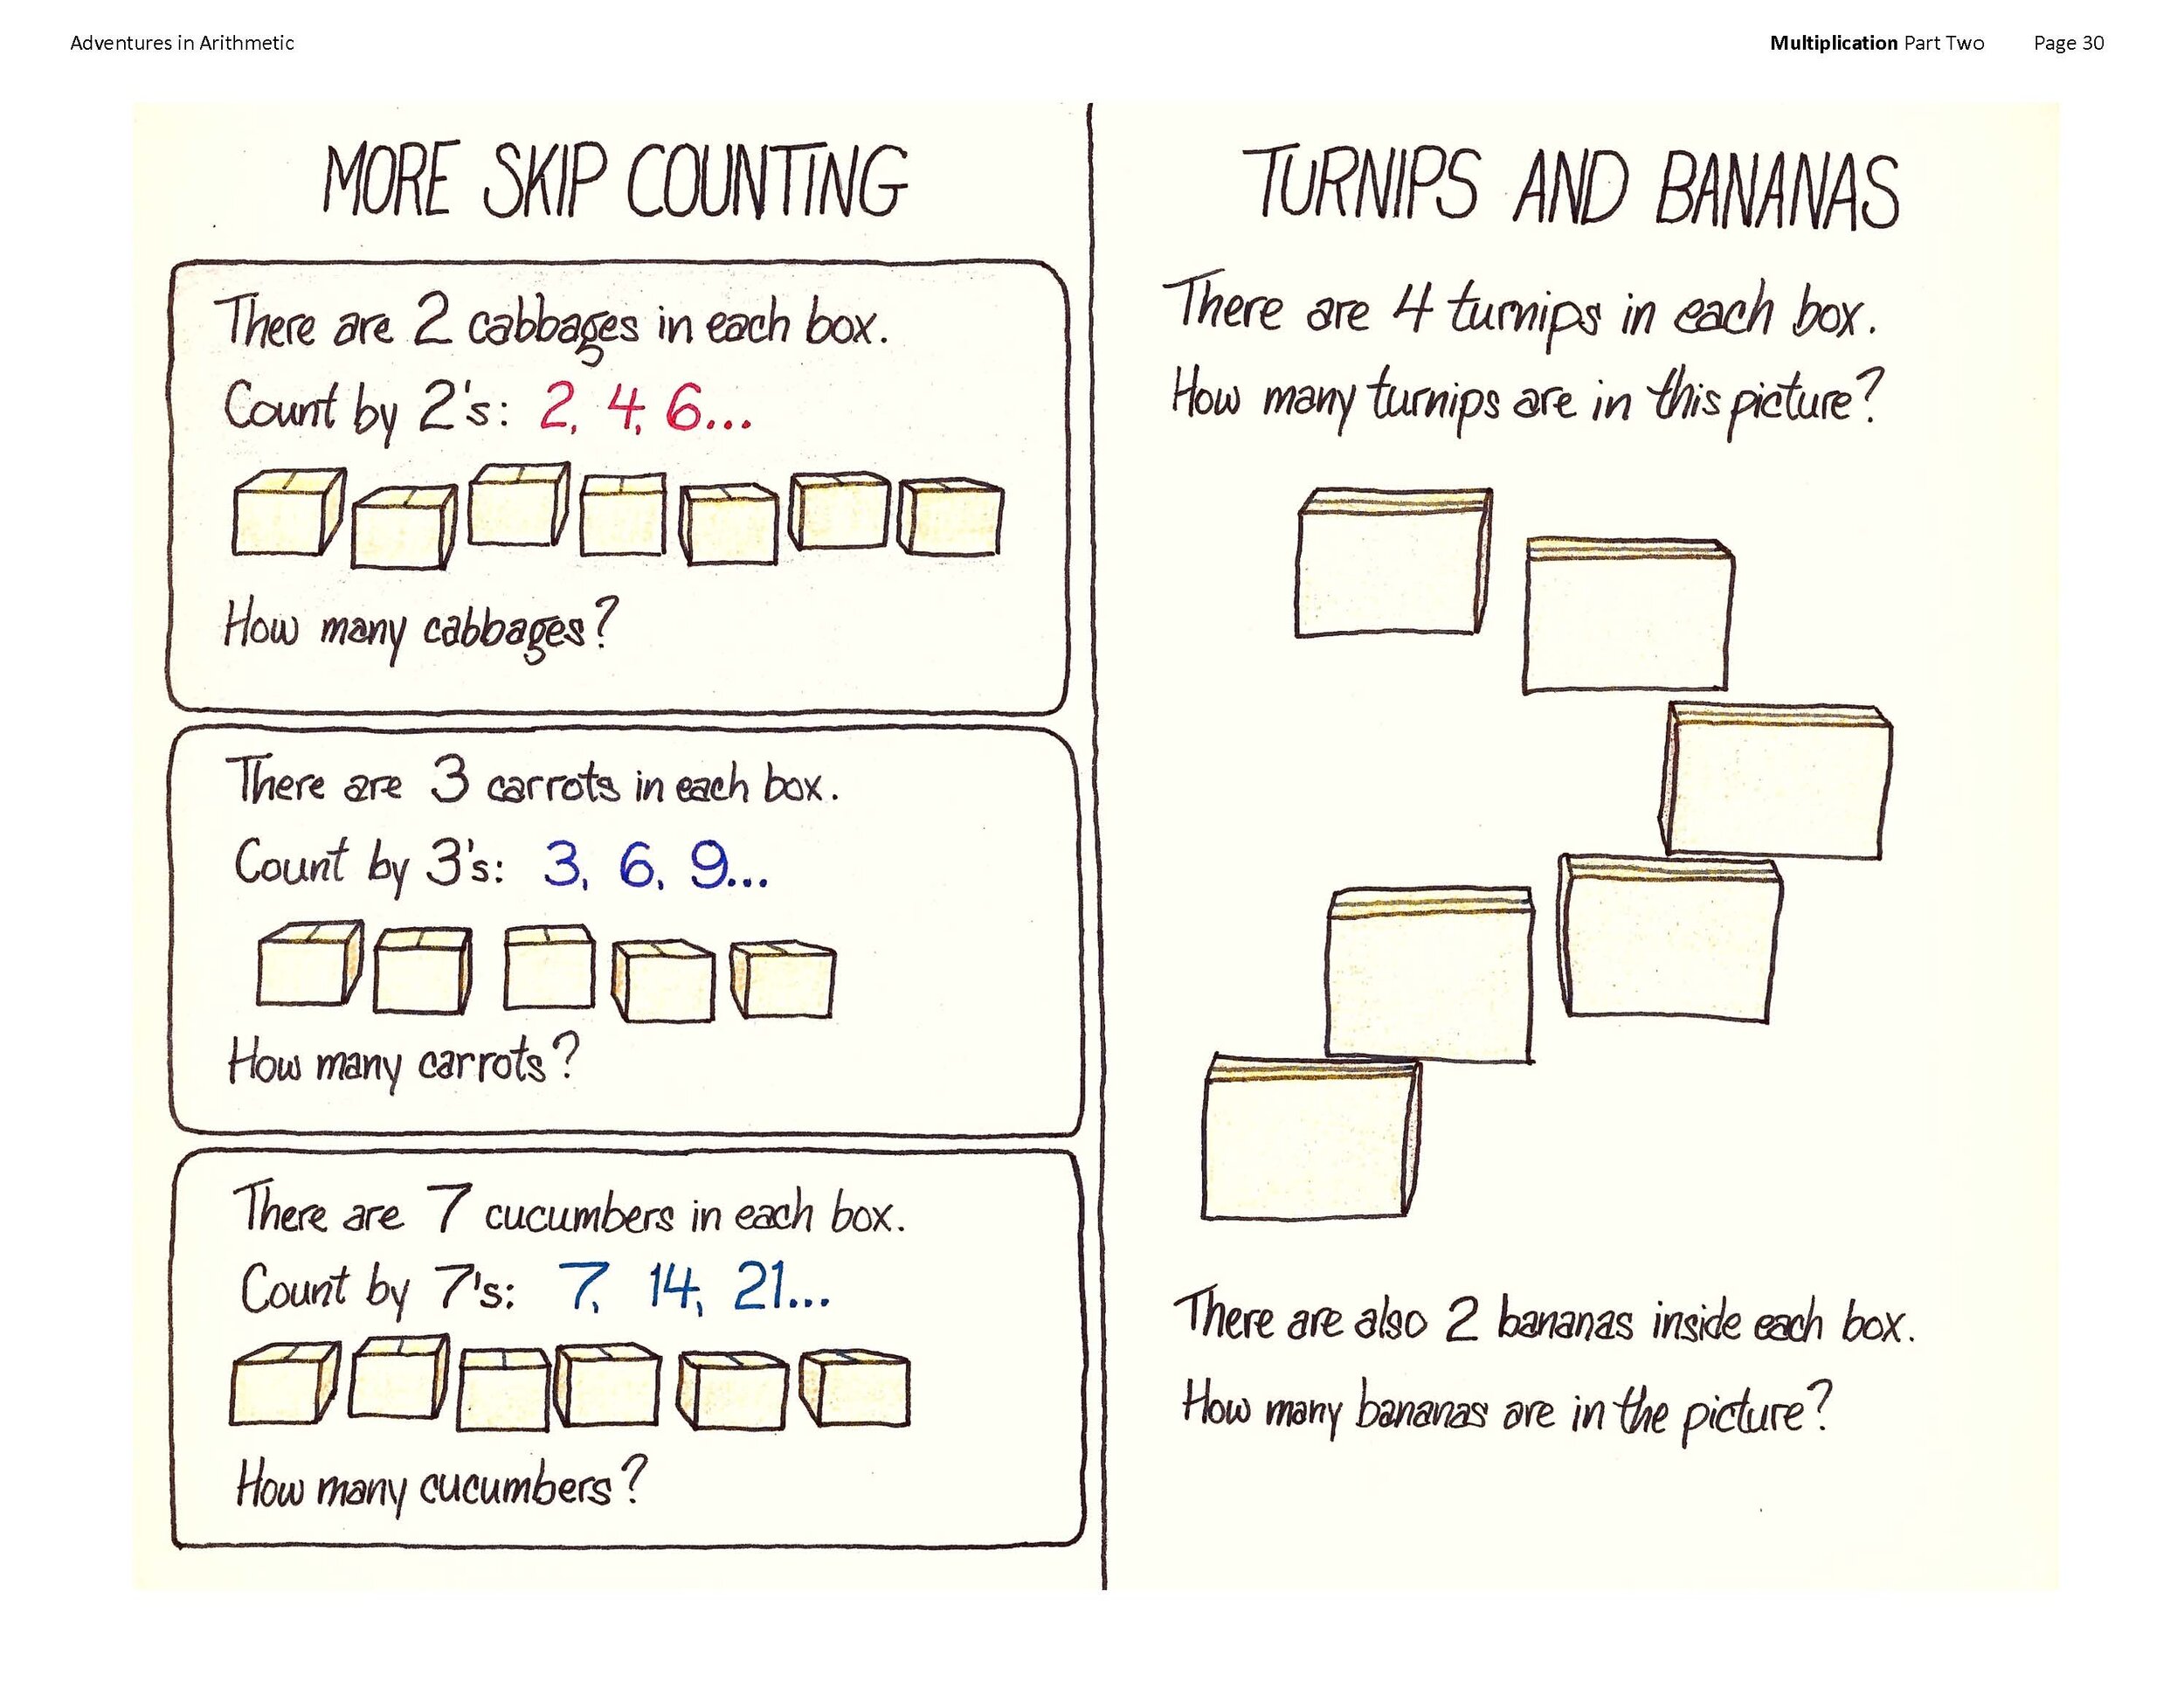 Adventures in Arithmetic
Multiplication Part Two Page 30
MORE SKIP COUNTING
There are 2 cabbages in each box.
Count by 2's: 2, 4, 6...
How many cabbages?
There are 3 carrots in each box.
Count by 3's: 3, 6, 9...
How many carrots?
There are 7 cucumbers in each box.
Count by 7's: 7, 14, 21...
How many cucumbers?
TURNIPS AND BANANAS
There are 4 turnips in each box.
How many turnips are in this picture?
There are also 2 bananas inside each box.
How many bananas are in the picture?